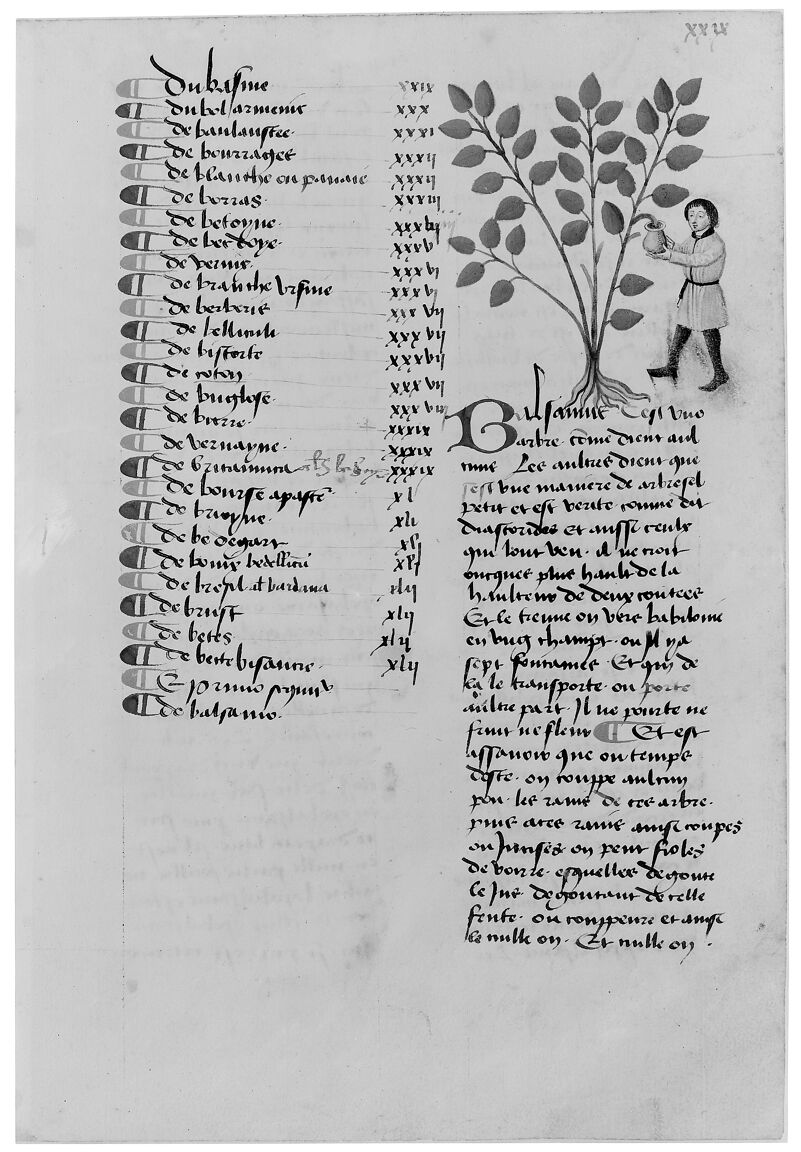 xxix
Du basme xxix
du bol armenic xxx
de baulaustee xxxi
de bourrages xxxii
de blanche ou panaie xxxii
de borras xxxiii
de betoyne
de bedoye xxxv
de vernis xxxvi
de branche ursine xxxvi
de berberis xxxvii
de belliculi xxxvii
de bistorte xxxvii
de coton xxxvii
de buglose
de bierre xxxix
de vernayne xxxix
de britannica xxxix
de bourse apaste xl
de brioyne xli
de bedegart xli
de bouix xli
de bresil al bardana xlii
de brust xlii
de betes xlii
de bette bisancie xlii
Et primo
de balsamo
Balsamus C'est une
arbre come dient aul
cuns Les aultres dient que
c'est une maniere de arbresel
petit et est verite comme dit
diascorides et aussi ceulx
qui lont veu il ne croit
oncques plus hault de la
haulteur de deux coutees
Et le treuve on vers babiloine
en ung champt ou Il y a
sept fontaines Et qui de
la le transporte ou porte
aultre part Il ne pourte ne
fruit ne fleur Et est
assavoir que ou temps
deste on couppe aulcun
pou les rains de ces arbre
puis a ces rains ainsi coupes
ou Incises on pent fioles
de voirre esquelles degoute
le Jus degoutant de celle
fente ou couppeure et ainsi
le cuille on Et cuille on